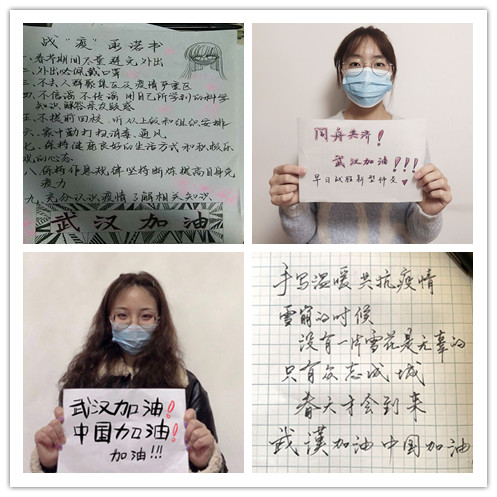 战“疫”承诺书
一、春节期间尽量避免外出
二、外出必佩戴口罩
三、不去人群聚集区及疫情严重区
四、不信谣 不传谣 用自己所学到的科学
知识,解答亲友疑惑
五、不提前回校,听从上级和组织安排
六、家中勤打扫消毒、通风
七、保持健康良好的生活方式和积极乐
观的心态
八、保持作息规律坚持断炼提高自身免
疫力
九、充分认识疫情,了解相关知识
武汉加油
同舟共济!
武汉加油!!!
早日战胜新型肺炎
武汉加油!
中国加油!
加油!!!
手写温暖共抗疫情
雪崩的时候
没有一片雪花是无辜的
只有众志成城
春天才会到来
武漢加油 中国加油